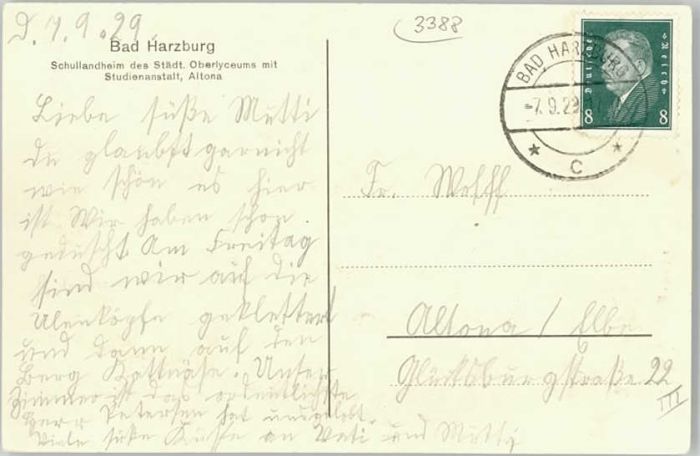 D. 7.9.29.
3388
Bad Harzburg
Schullandheim des Städt. Oberlyceums mit
Studienanstalt, Altona
Liebe süße Mutti
du glaubst garnicht
wie schön es hier
ist. Wir haben schon
geduscht. Am Freitag
sind wir auf die
Ulenköpfe geklettert
und dann auf den
Berg Kattnäse. Unser
Zimmer ist das ordentlichste
Herr Petersen hat uns gelobt.
Viele süße Küsse an Vati und Mutti
BAD HARZBURG
-7.9.29
* C *
Deutsches Reich
8 8
Fr. Wolff
Altona / Elbe
Glücksburgstraße 22
III